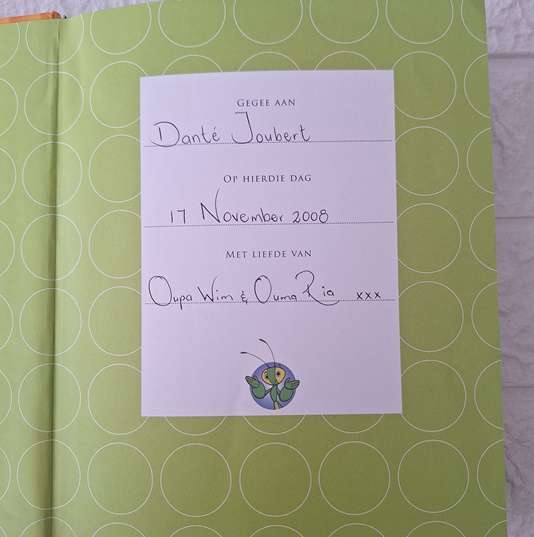 GEGEE AAN
Danté Joubert
OP HIERDIE DAG
17 November 2008
MET LIEFDE VAN
Oupa Wim & Ouma Ria xxx